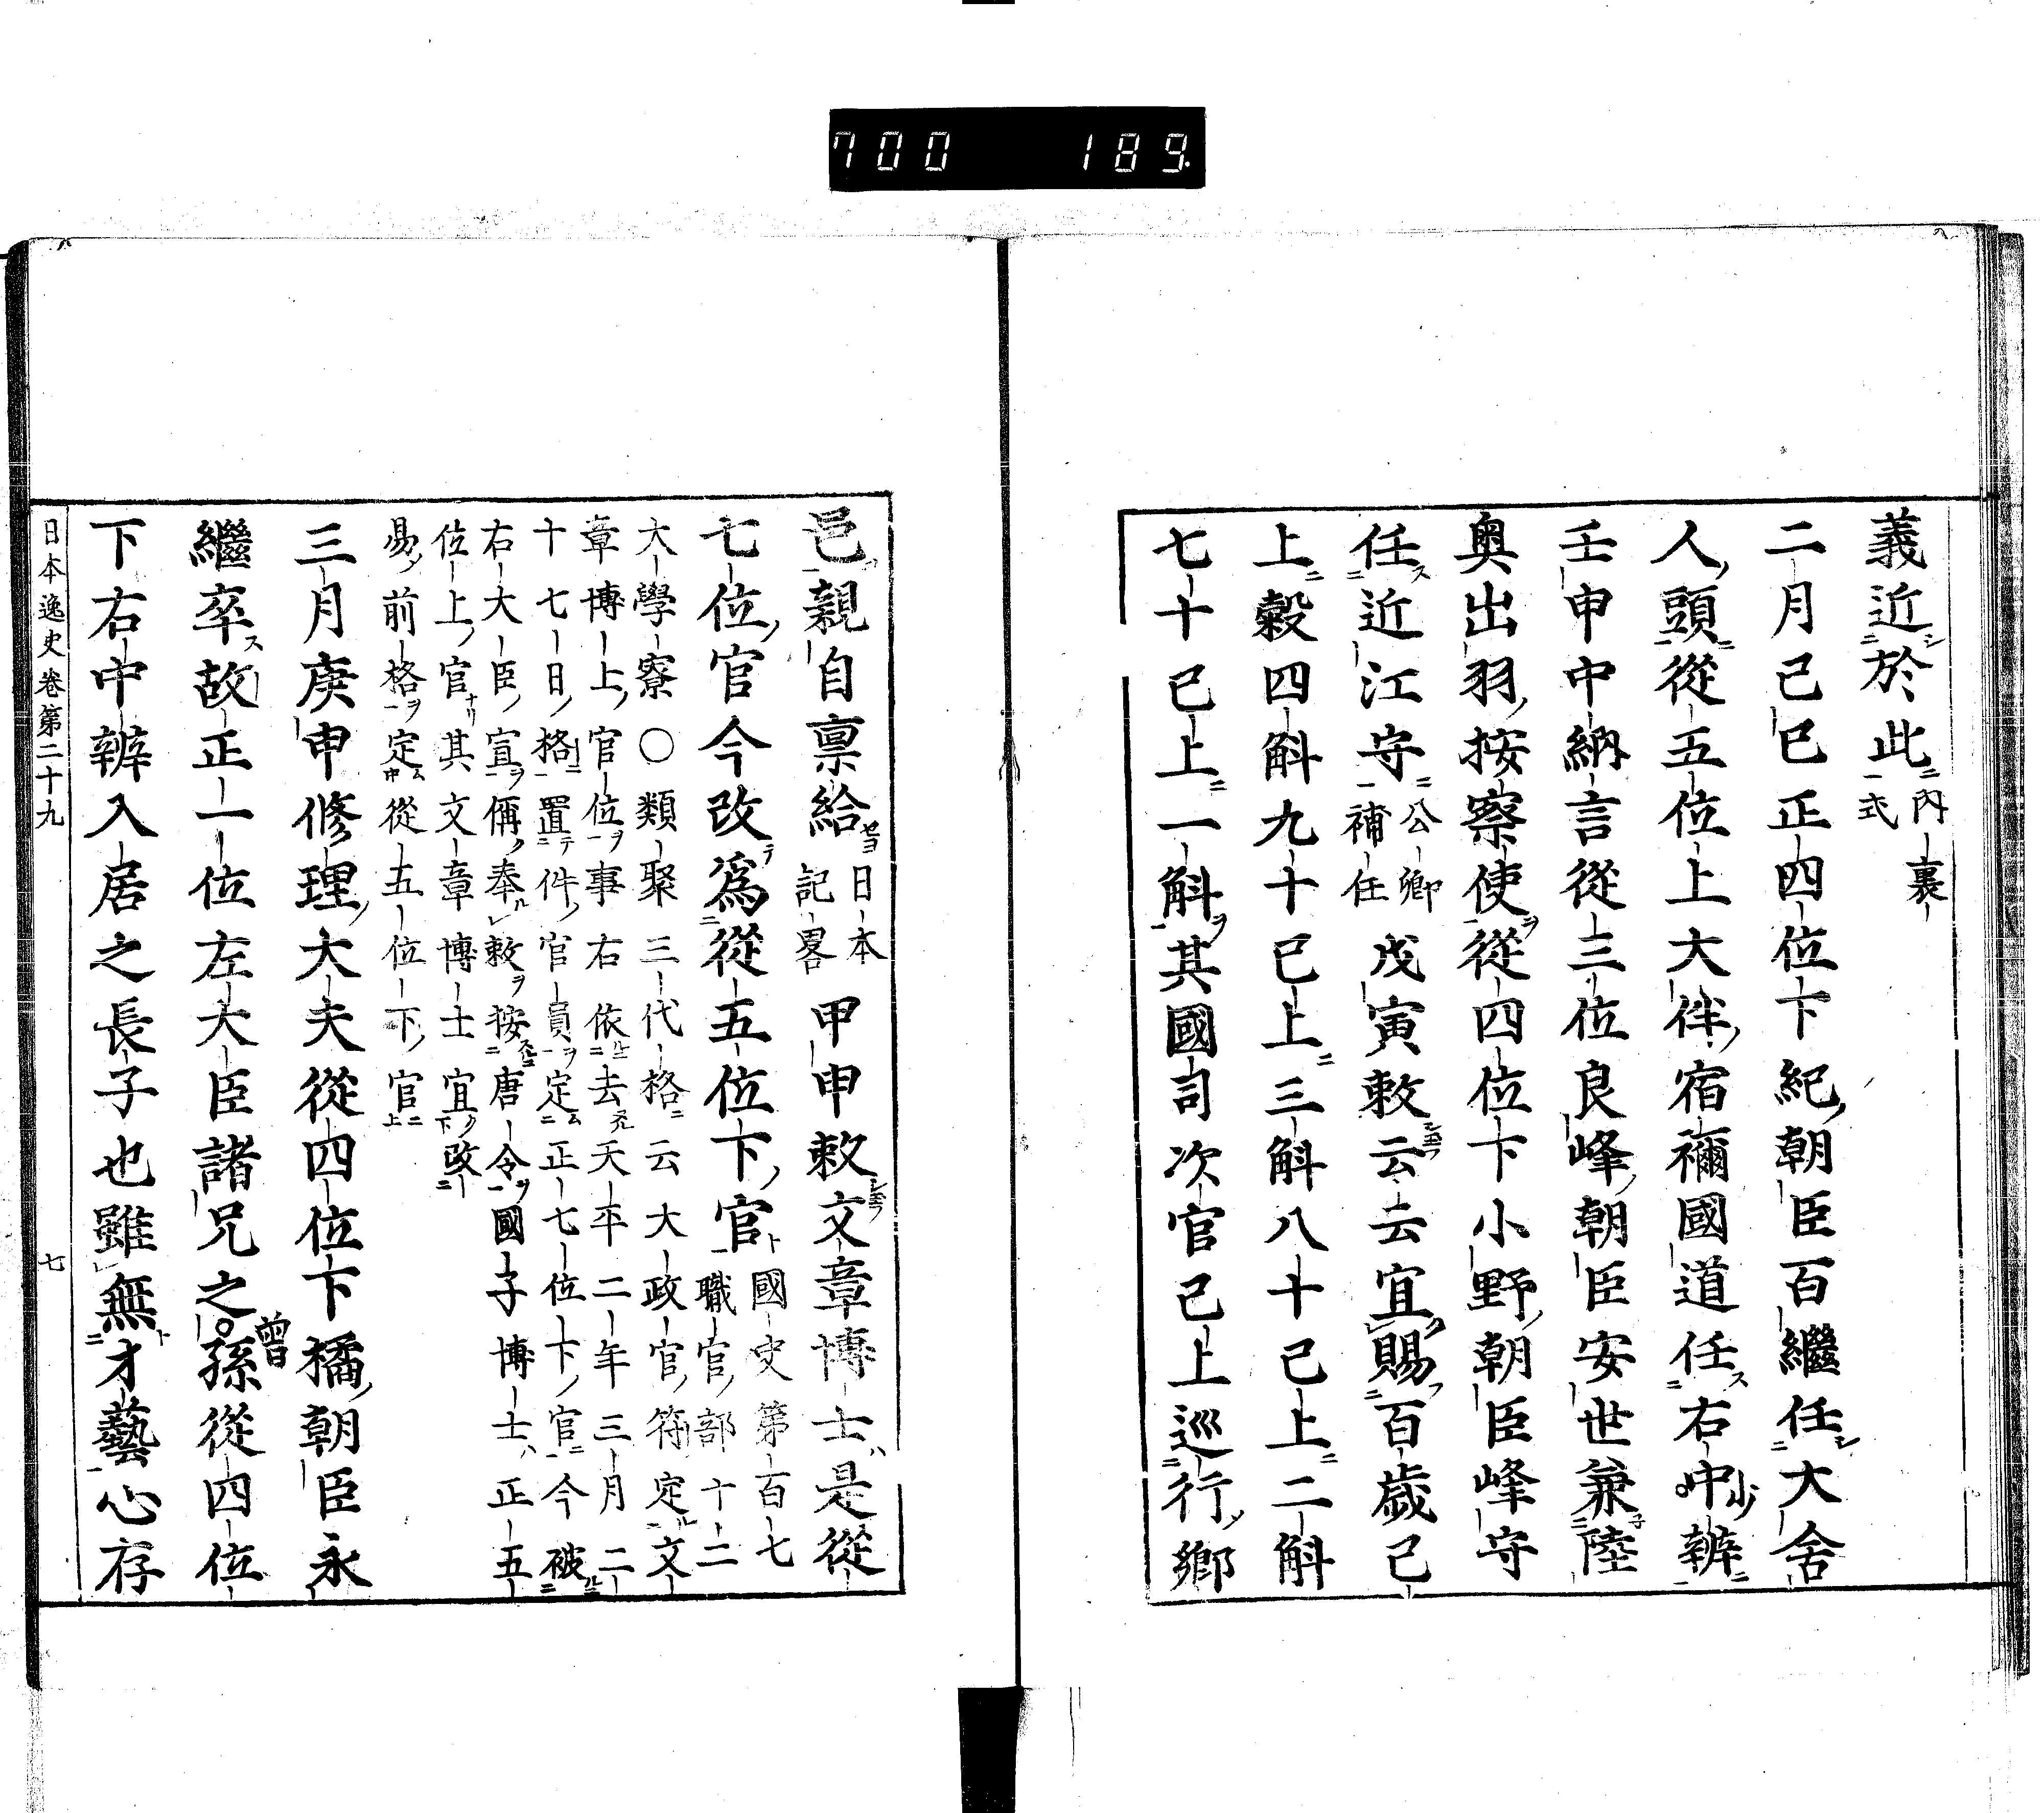 700 189
義近於此内裏式
二月己巳正四位下紀朝臣百繼任大舍
人頭從五位上大伴宿禰國道任右中辨
少
壬申中納言從三位良峰朝臣安世兼陸
奥出羽按察使從四位下小野朝臣峰守
任近江守公卿補任戊寅敕云云宜賜百歳已
上穀四斛九十已上三斛八十已上二斛
七十已上一斛其國司次官已上巡行鄉
邑親自禀給日本記畧甲申敕文章博士是從
七位官今改爲從五位下官國史第百七職官部十二
大學寮〇類聚三代格云大政官符定文
章博士官位事右依去天平二年三月二
十七日格置件官員定正七位下官今被
右大臣宣偁奉敕按唐令國子博士正五
位上官其文章博士宜改
易前格定從五位下官
三月庚申修理大夫從四位下橘朝臣永
繼卒故正一位左大臣諸兄之孫從四位
曾
下右中辨入居之長子也雖無才藝心存
日本逸史卷第二十九 七